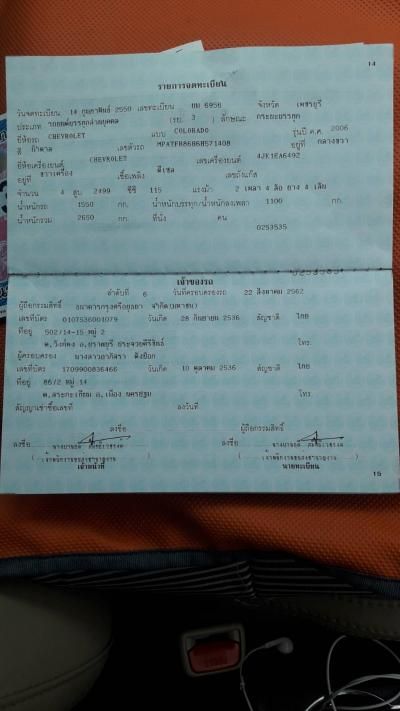 14
รายการจดทะเบียน
วันจดทะเบียน 14 กุมภาพันธ์ 2550 เลขทะเบียน บม 6956 จังหวัด เพชรบุรี
ประเภท รถยนต์บรรทุกส่วนบุคคล (รย. 3 ) ลักษณะ กระบะบรรทุก
ยี่ห้อรถ CHEVROLET แบบ COLORADO รุ่นปี ค.ศ. 2006
สี น้ำตาล เลขตัวรถ MPATFR86H6H571408 อยู่ที่ กลางขวา
ยี่ห้อเครื่องยนต์ CHEVROLET เลขเครื่องยนต์ 4JK1EA6492
อยู่ที่ ขวาเครื่อง เชื้อเพลิง ดีเซล เลขถังแก๊ส
จำนวน 4 สูบ 2499 ซีซี 115 แรงม้า 2 เพลา 4 ล้อ ยาง 4 เส้น
น้ำหนักรถ 1550 กก. น้ำหนักบรรทุก/น้ำหนักลงเพลา 1100 กก.
น้ำหนักรวม 2650 กก. ที่นั่ง คน
0253535
เจ้าของรถ
ลำดับที่ 6 วันที่ครอบครองรถ 22 สิงหาคม 2562
ผู้ถือกรรมสิทธิ์ ธนาคารกรุงศรีอยุธยา จำกัด(มหาชน)
เลขที่บัตร 0107536001079 วันเกิด 28 กันยายน 2536 สัญชาติ ไทย
ที่อยู่ 502/14-15 หมู่ 2 โทร.
ต.วังก์พง อ.ปราณบุรี ประจวบคีรีขันธ์
ผู้ครอบครอง นางสาวอาภัสรา
เลขที่บัตร 1709900836466 วันเกิด 10 ตุลาคม 2536 สัญชาติ ไทย
ที่อยู่ 86/2 หมู่ 14 โทร
ต.สระกะเทียม อ.เมือง นครปฐม
สัญญาเช่าซื้อเลขที่ ลงวันที่
ลงชื่อ ผู้ถือกรรมสิทธิ์
ลงชื่อ ลงชื่อ
เจ้าหน้าที่ นายทะเบียน
15
PRESS